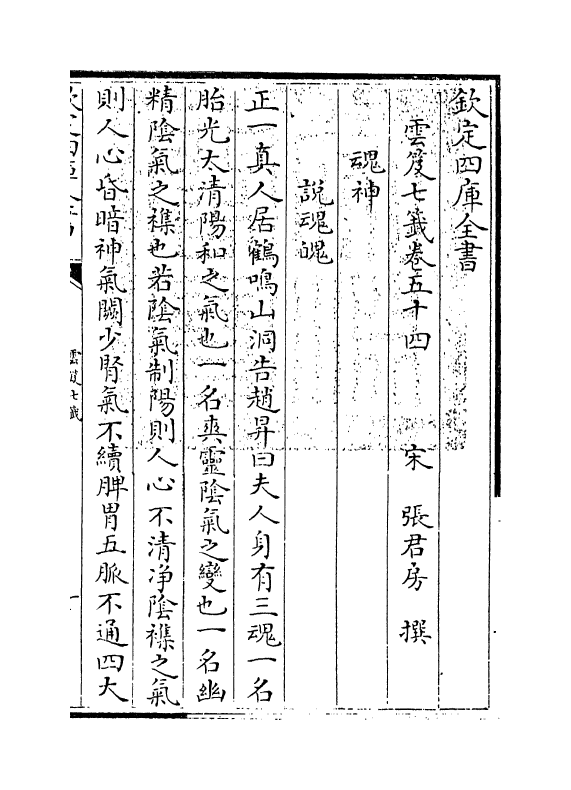 欽定四庫全書
雲笈七籤卷五十四 宋 張君房 撰
魂神
說魂魄
正一真人居鶴鳴山洞告趙昇曰夫人身有三魂一名
胎光太清陽和之氣也一名爽靈陰氣之變也一名幽
精陰氣之襍也若陰氣制陽則人心不清净陰襍之氣
則人心昏暗神氣闕少腎氣不續脾胃五脈不通四大
雲笈七籤